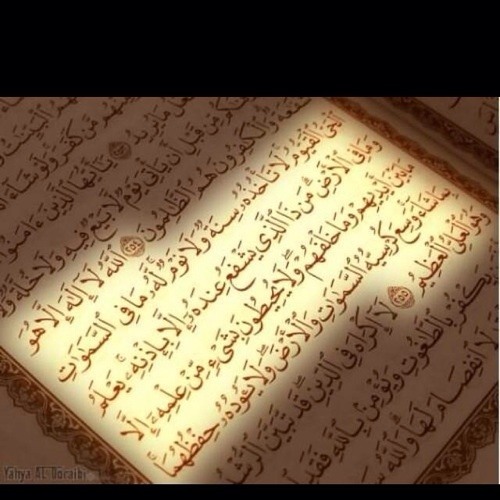 مَا يُرِيدُ ٢٥٣ يَٰٓأَيُّهَا ٱلَّذِينَ ءَامَنُوٓا۟
مِّن قَبْلِ أَن يَأْتِىَ يَوْمٌ لَّا بَيْعٌ فِيهِ وَلَا خُلَّةٌ وَلَا
وَٱلْكَٰفِرُونَ هُمُ ٱلظَّٰلِمُونَ ٢٥٤ ٱللَّهُ لَآ إِلَٰهَ إِلَّا هُوَ
ٱلْحَىُّ ٱلْقَيُّومُ ۚ لَا تَأْخُذُهُۥ سِنَةٌ وَلَا نَوْمٌ ۚ لَّهُۥ مَا فِى ٱلسَّمَٰوَٰتِ
وَمَا فِى ٱلْأَرْضِ ۗ مَن ذَا ٱلَّذِى يَشْفَعُ عِندَهُۥٓ إِلَّا بِإِذْنِهِۦ ۚ يَعْلَمُ
مَا بَيْنَ أَيْدِيهِمْ وَمَا خَلْفَهُمْ ۖ وَلَا يُحِيطُونَ بِشَىْءٍ مِّنْ عِلْمِهِۦٓ إِلَّا
بِمَا شَآءَ ۚ وَسِعَ كُرْسِيُّهُ ٱلسَّمَٰوَٰتِ وَٱلْأَرْضَ ۖ وَلَا يَـُٔودُهُۥ حِفْظُهُمَا ۚ
وَهُوَ ٱلْعَلِىُّ ٱلْعَظِيمُ ٢٥٥ لَآ إِكْرَاهَ فِى ٱلدِّينِ ۖ قَد تَّبَيَّنَ ٱلرُّشْدُ
يَكْفُرْ بِٱلطَّٰغُوتِ وَيُؤْمِنۢ بِٱللَّهِ فَقَدِ
لَا ٱنفِصَامَ لَهَا ۗ وَٱللَّهُ
Yahya AL Doraibi